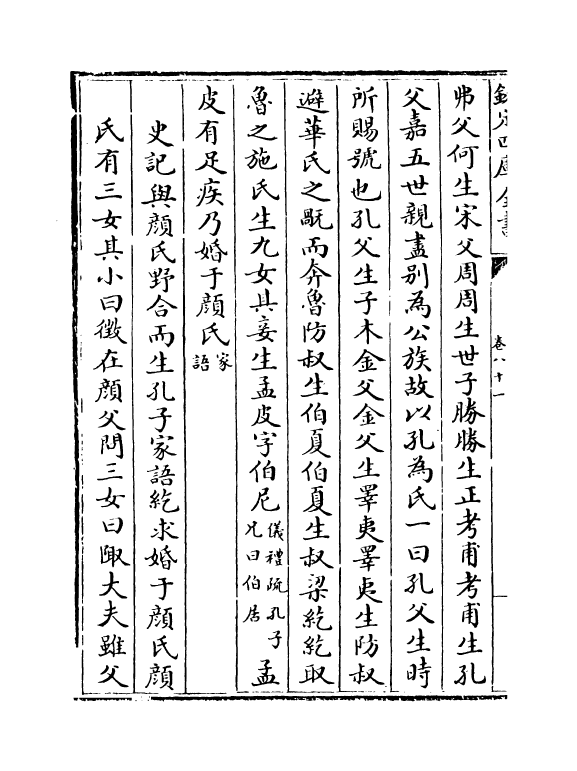 欽定四庫全書
卷八十一
弗父何生宋父周周生世子勝勝生正考甫考甫生孔
父嘉五世親盡别為公族故以孔為氏一曰孔父生時
所賜號也孔父生子木金父金父生睪夷睪夷生防叔
避華氏之䰟而奔魯防叔生伯夏伯夏生叔梁紇紇取
魯之施氏生九女其妾生孟皮字伯尼儀禮疏孔子兄曰伯居孟
皮有足疾乃婚于顔氏家語
史記與顔氏野合而生孔子家語紇求婚于顔氏顔
氏有三女其小曰徵在顔父問三女曰陬大夫雖父